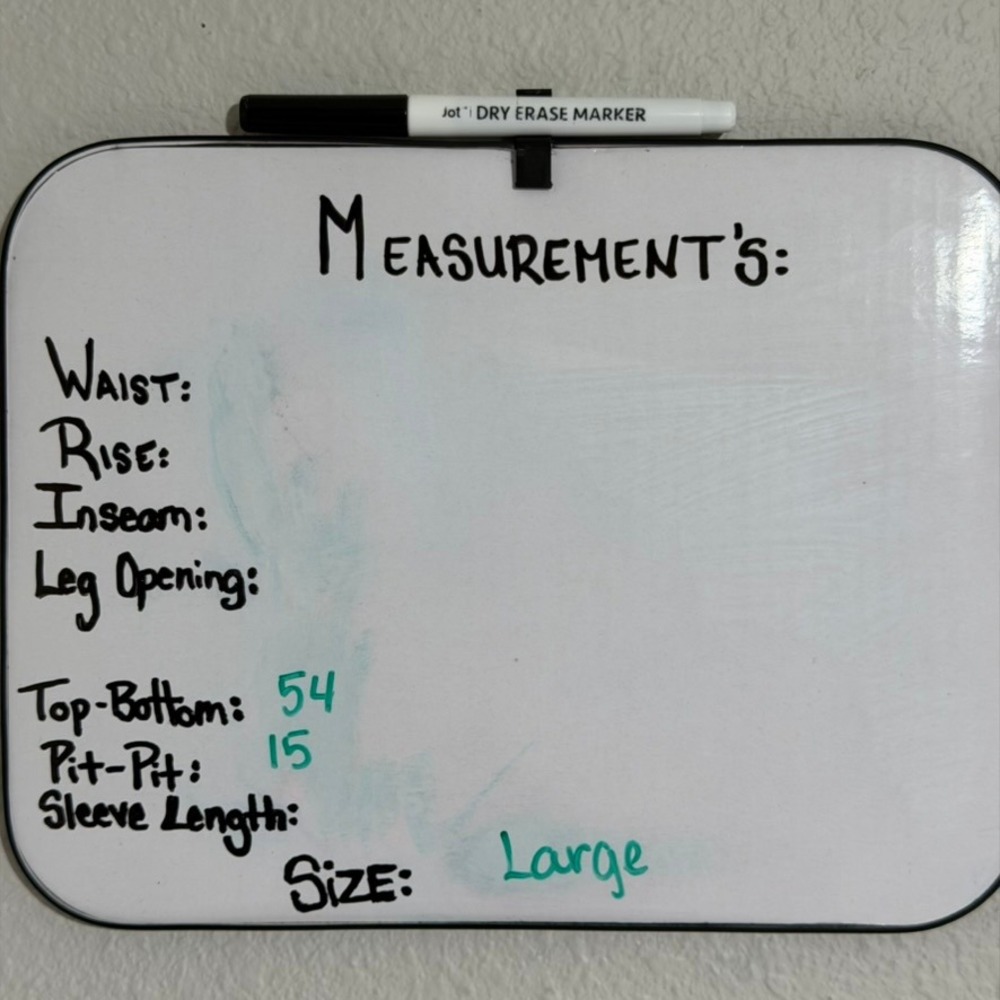 Jot™ DRY ERASE MARKER
MEASUREMENT'S:
WAIST:
RISE:
Inseam:
Leg Opening:
Top-Bottom: 54
Pit-Pit: 15
Sleeve Length:
SiZE: Large